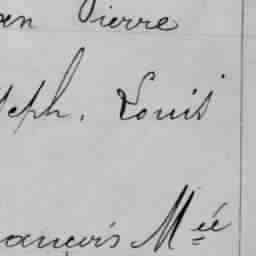 en Pierre
seph, Louis
ançois Mié